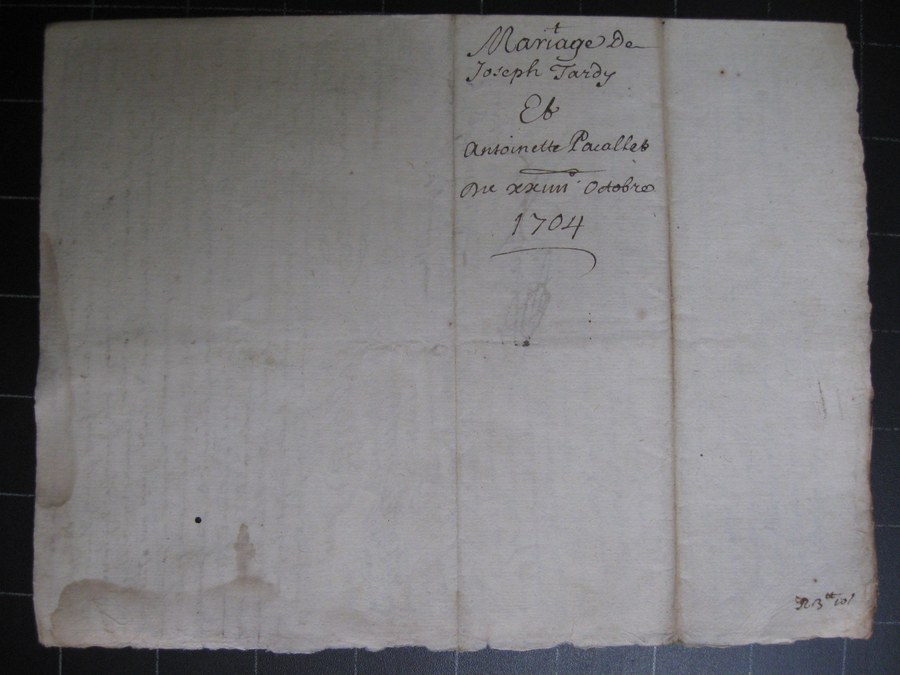 Mariage De
Joseph Tardy
Et
Antoinette Pacallet
Du xxiiii Octobre
1704